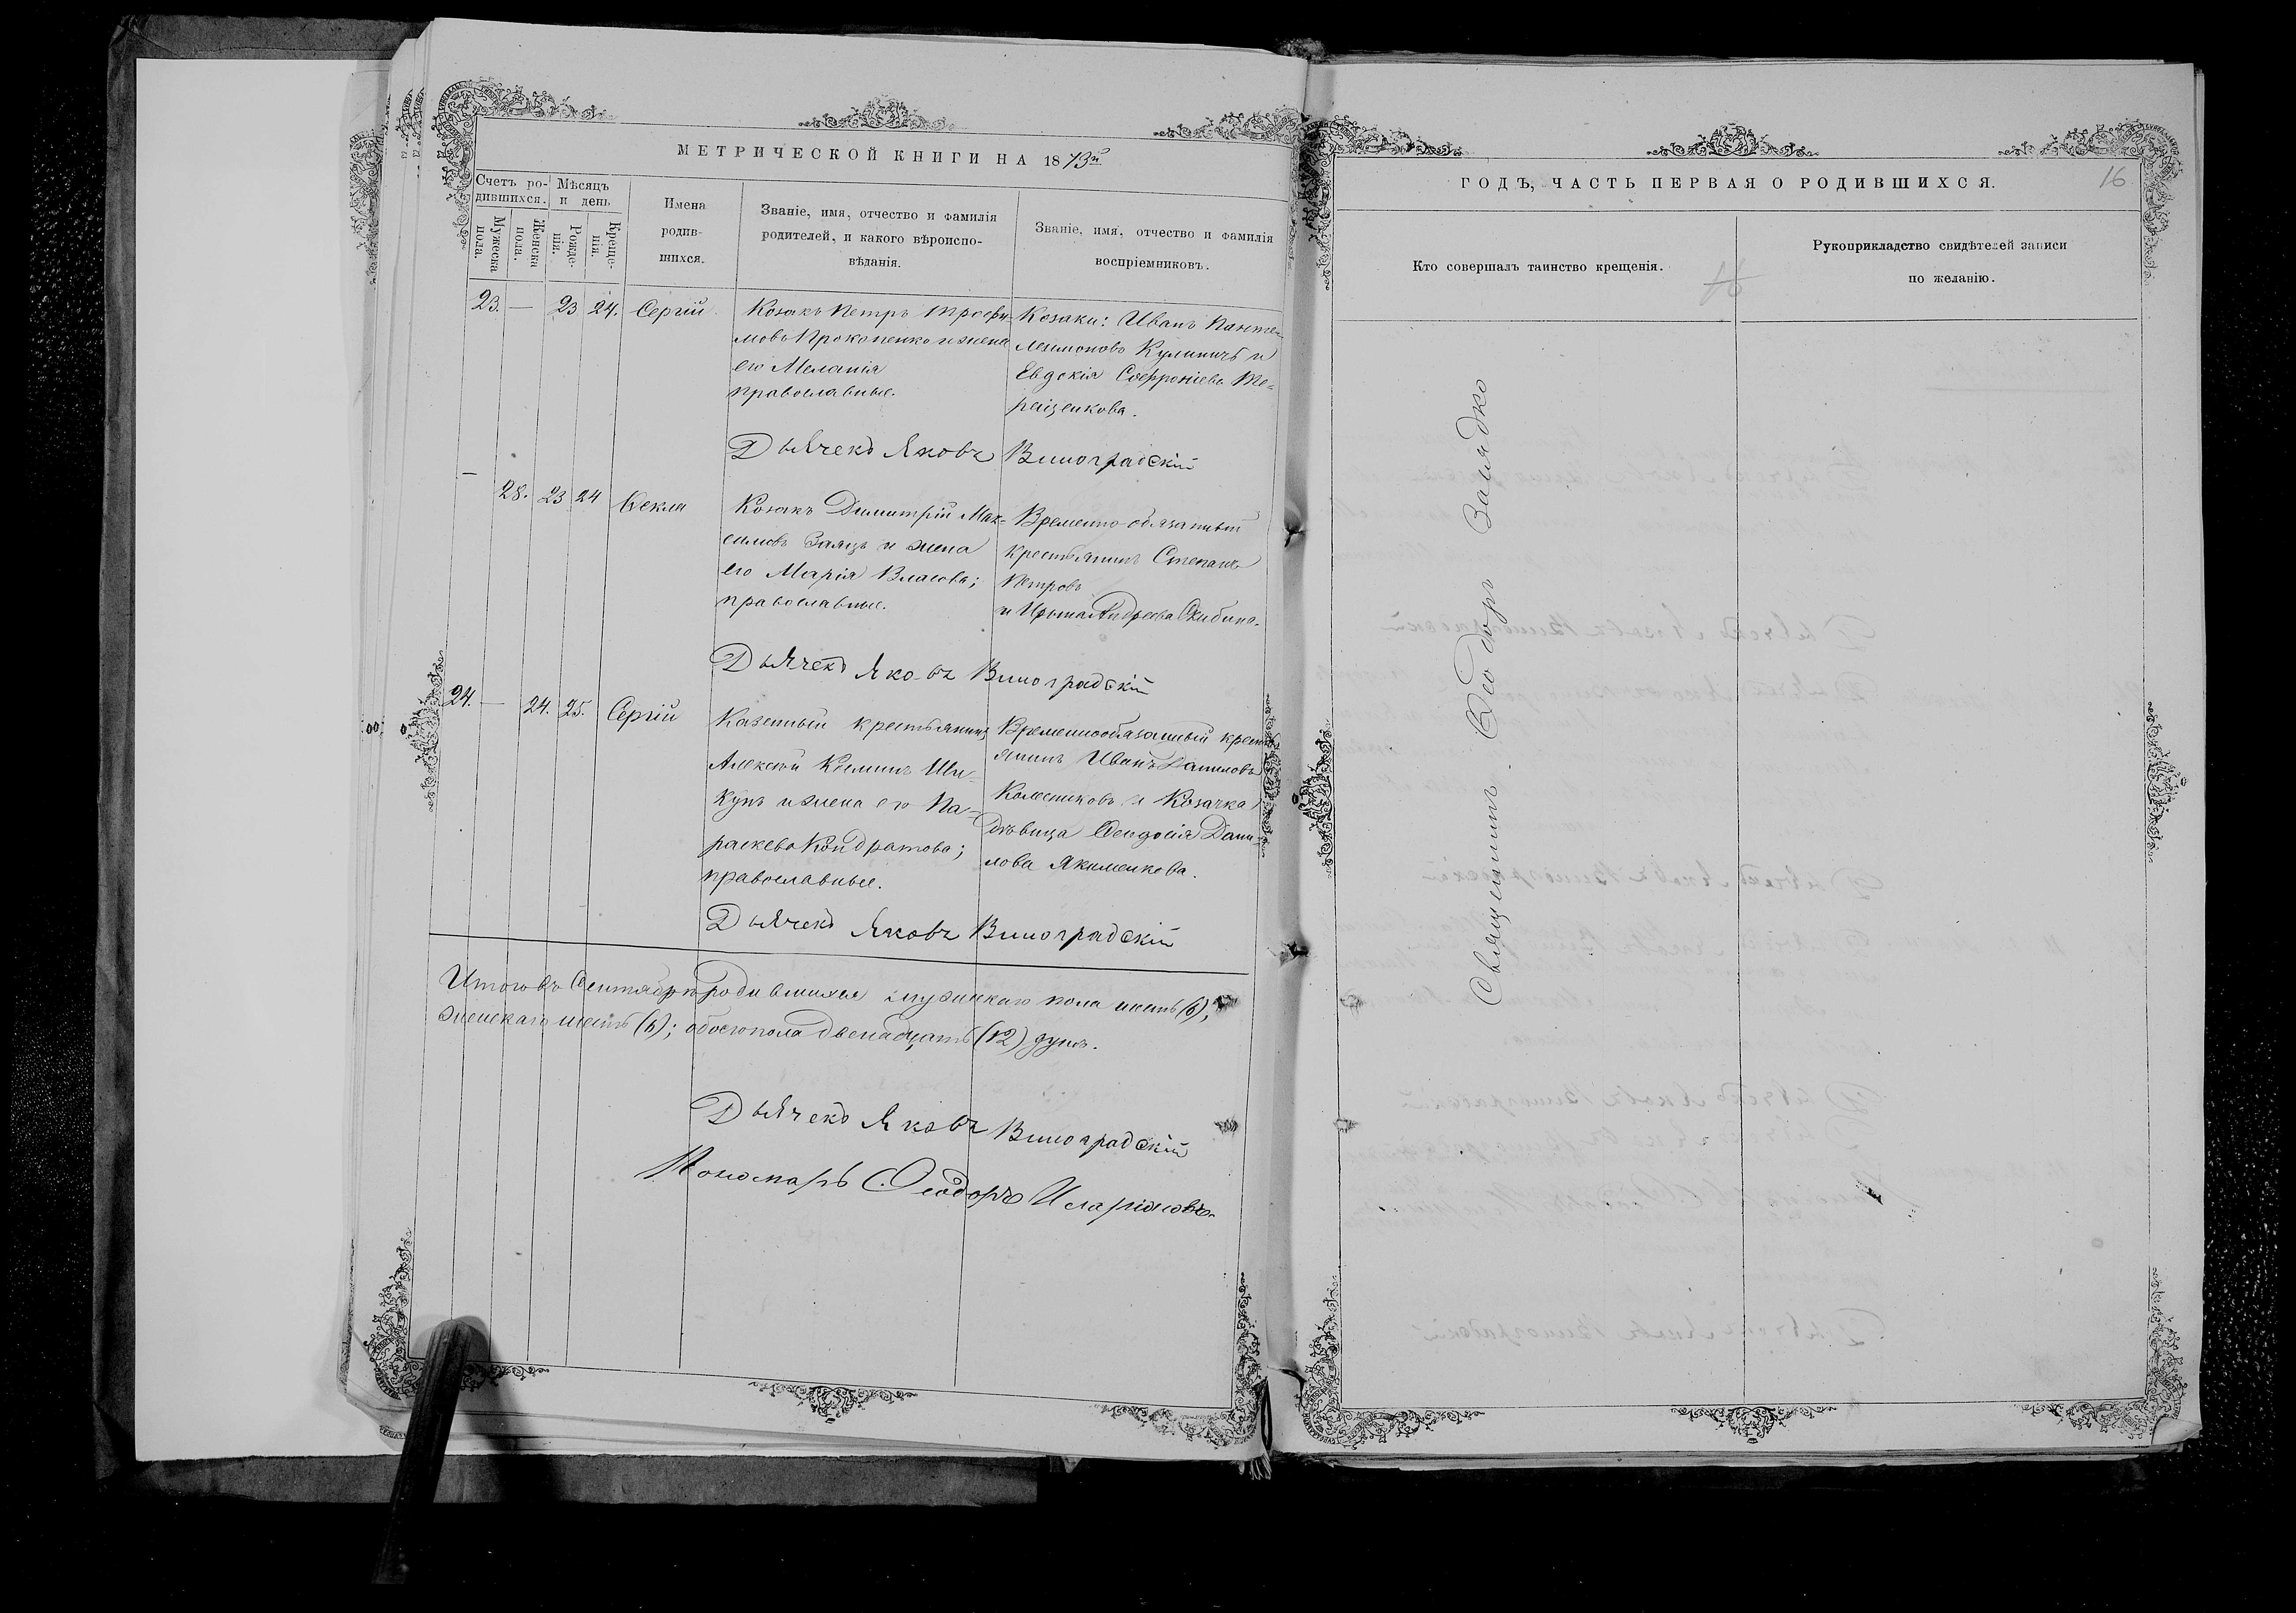 МЕТРИЧЕСКОЙ КНИГИ НА 1873й
Счетъ ро-
дившихся.
Мѣсяцъ
и день
Мужеска
пола.
Женска
пола.
Рожде-
нія.
Креще-
нія.
Имена
родив-
шихся.
Званіе, имя, отчество и фамилія
родителей, и какого вѣроиспо-
вѣданія.
Званіе, имя, отчество и фамилія
воспріемниковъ.
23. — 23 24. Сергій
Козакъ Петръ Трофи-
мовъ Прокопенко и жена
его Меланія
православные.
Козаки: Иванъ Панте-
леимоновъ Кулиничъ и
Евдокія Софроніева Те-
рещенкова.
Дьячекъ Яковъ Виноградскій
— 28. 23 24 Ѳекла
Козакъ Димитрій Мак-
симовъ Заяцъ и жена
его Марія Власова;
православные.
Временно-обязанный
крестьянинъ Степанъ
Петровъ
и Ирина Андреева Скибина.
Дьячекъ Яковъ Виноградскій
24. — 24. 25. Сергій
Казенный крестьянинъ
Алексѣй Косминъ Ши-
кунъ и жена его Па-
раскева Кондратова;
православные.
Временнообязанный кресть-
янинъ Иванъ Даниловъ
Колесниковъ и Козачка
Дѣвица Ѳеодосія Дани-
лова Якименкова.
Дьячекъ Яковъ Виноградскій
Итого въ Сентябрѣ родившихся мужескаго пола шесть (6);
женскаго шесть (6); обоего пола двенадцать (12) душъ.
Дьячекъ Яковъ Виноградскій
Пономарь Ѳеодоръ Иларіоновъ.
ГОДЪ, ЧАСТЬ ПЕРВАЯ О РОДИВШИХСЯ.
16
Кто совершалъ таинство крещенія.
Рукоприкладство свидѣтелей записи
по желанію.
Священникъ Ѳеодоръ Валядко